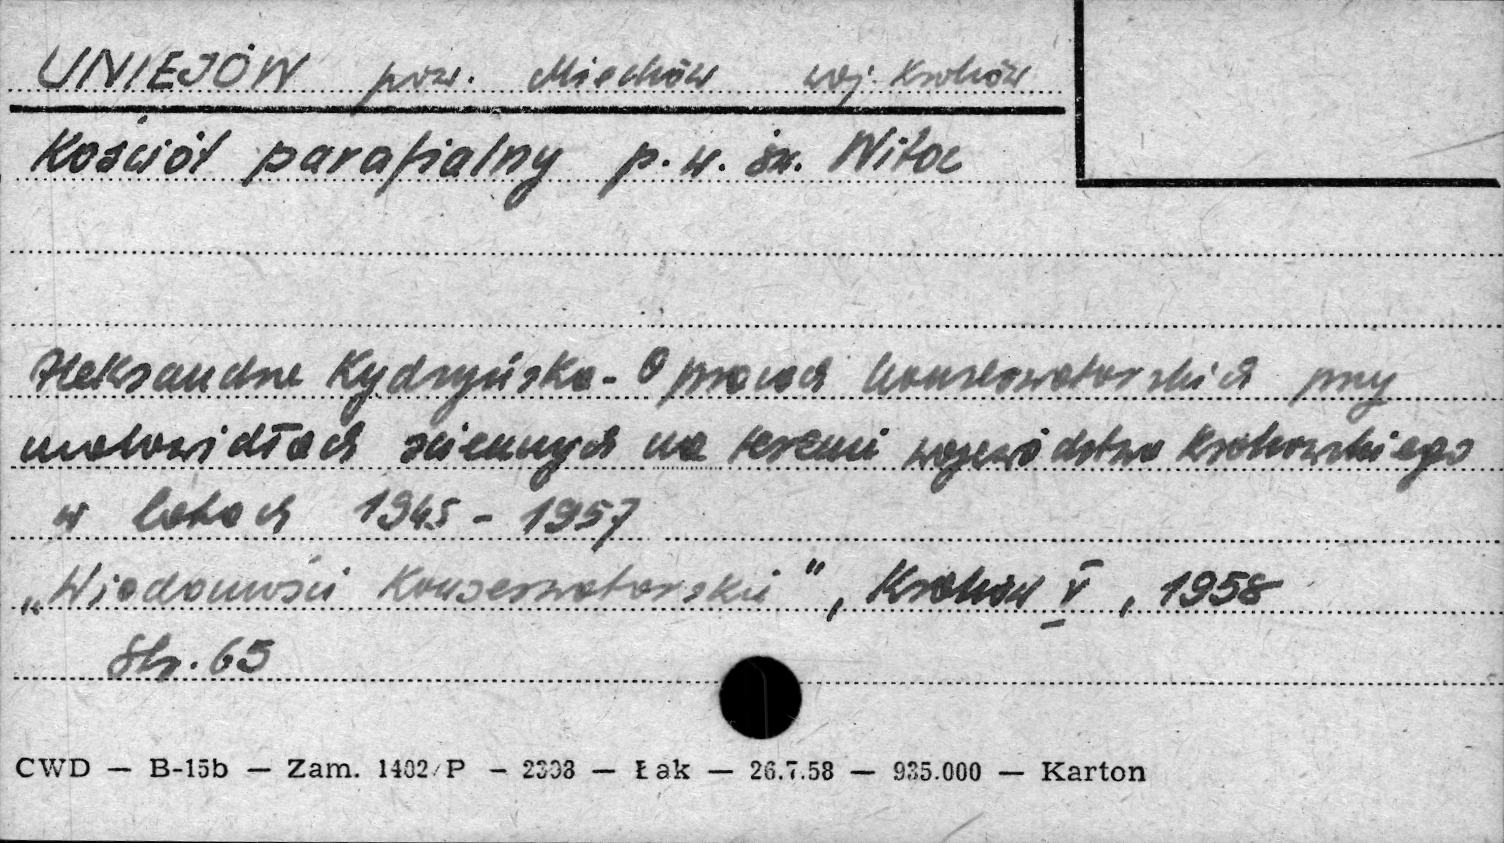 UNIEJÓW pow. Miechów woj. Kraków
Kościół parafialny p.w. św. Wita
Aleksandra Kydryńska - O pracach konserwatorskich przy
malowidłach ściennych na terenie województwa krakowskiego
w latach 1945 - 1957
„Wiadomości Konserwatorskie", Kraków V, 1958
Str. 65
CWD — B-15b — Zam. 1402/P — 2308 — Łak — 26.7.58 — 935.000 — Karton